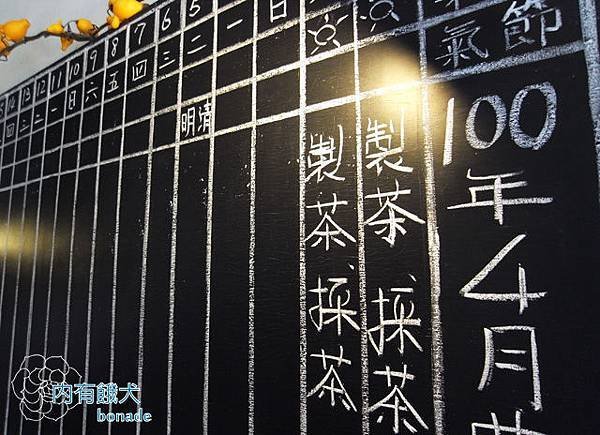 節氣
100年4月
製茶、採茶
製茶、採茶
日
一
5 二 清明
6 三
7 四
8 五
9 六
10 日
11 一
12 二
13 三
14 四
内有餓犬
bonade